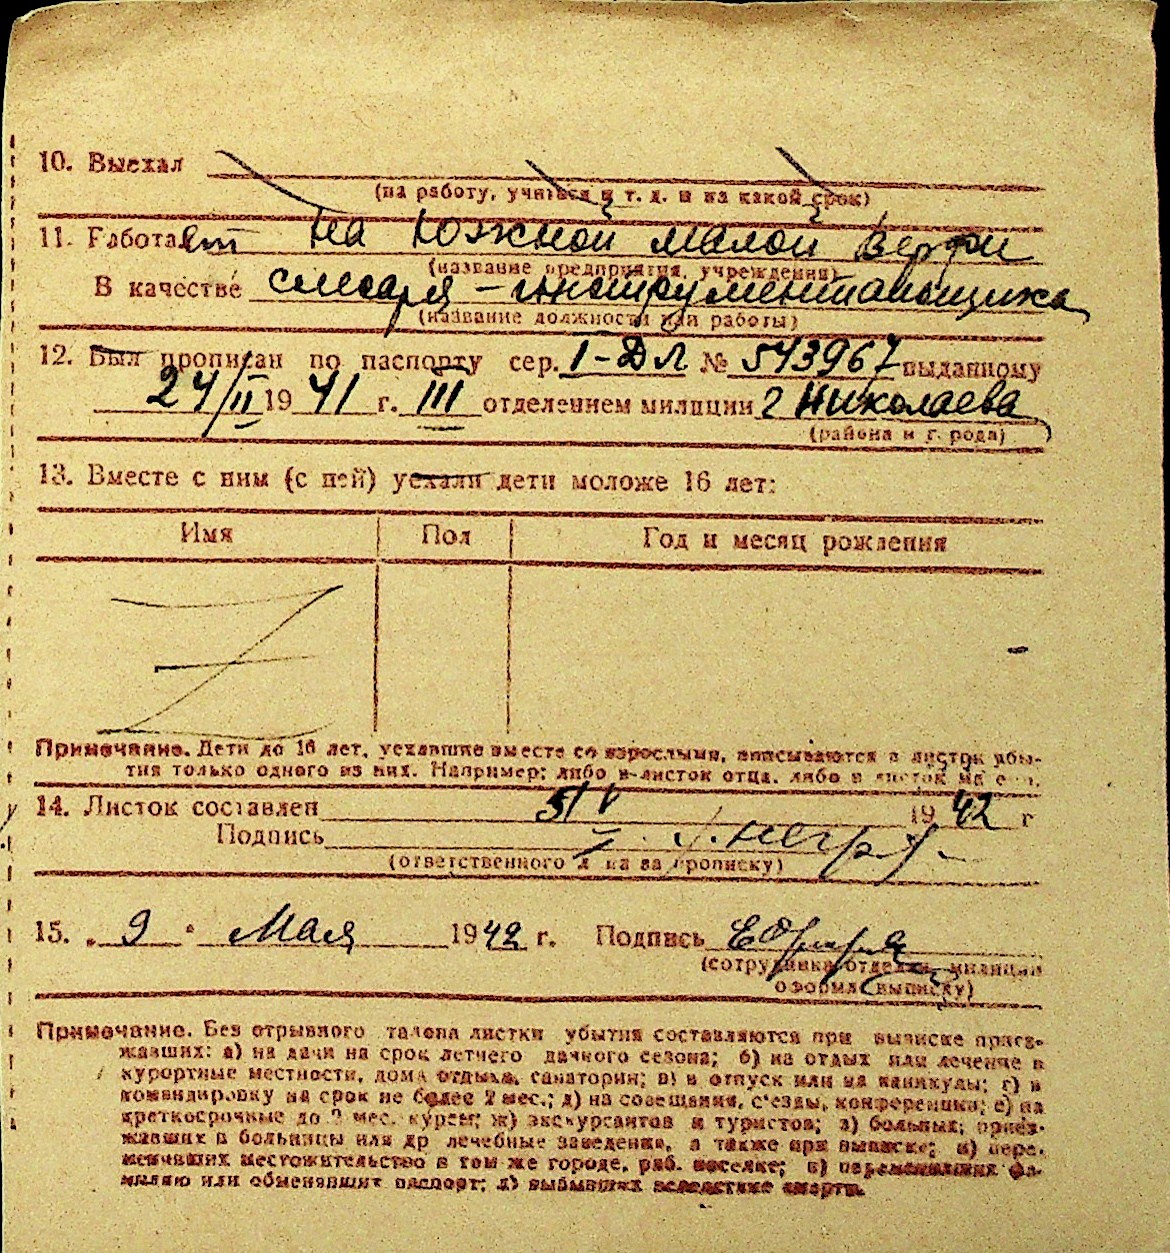 10. Выехал
(на работу, учиться и т. д. и на какой срок)
11. Работает на Южной малой верфи
(название предприятия, учреждения)
В качестве слесаря - инструментальщика
(название должности или работы)
12. Был прописан по паспорту сер. I-ДЛ № 543967 выданному
24/II 1941 г. III отделением милиции г Николаева
(района и г. рода)
13. Вместе с ним (с ней) уехали дети моложе 16 лет:
Имя Пол Год и месяц рождения
Примечание. Дети до 16 лет, уехавшие вместе со взрослыми, вписываются в листок убы-
тия только одного из них. Например: либо в листок отца, либо в листок
14. Листок составлен 5/V 1942 г
Подпись
(ответственного за прописку)
15. „9" Мая 1942 г. Подпись
(сотрудника отдел. милиции
оформл. выписку)
Примечание. Без отрывного талона листки убытия составляются при выписке приез-
жавших: а) на дачи на срок летнего дачного сезона; б) на отдых или лечение в
курортные местности, дома отдыха, санатории; в) в отпуск или на каникулы; г) в
командировку на срок не более 2 мес.; д) на совещания, с'езды, конференции; е) на
краткосрочные до 2 мес. курсы; ж) экскурсантов и туристов; з) больных, приез-
жавших в больницы или др лечебные заведения, а также при выписке; и) пере-
менивших местожительство в том же городе, раб. поселке; к) переменивших фа-
милию или обменявших паспорт; л) выбывших вследствие смерти.